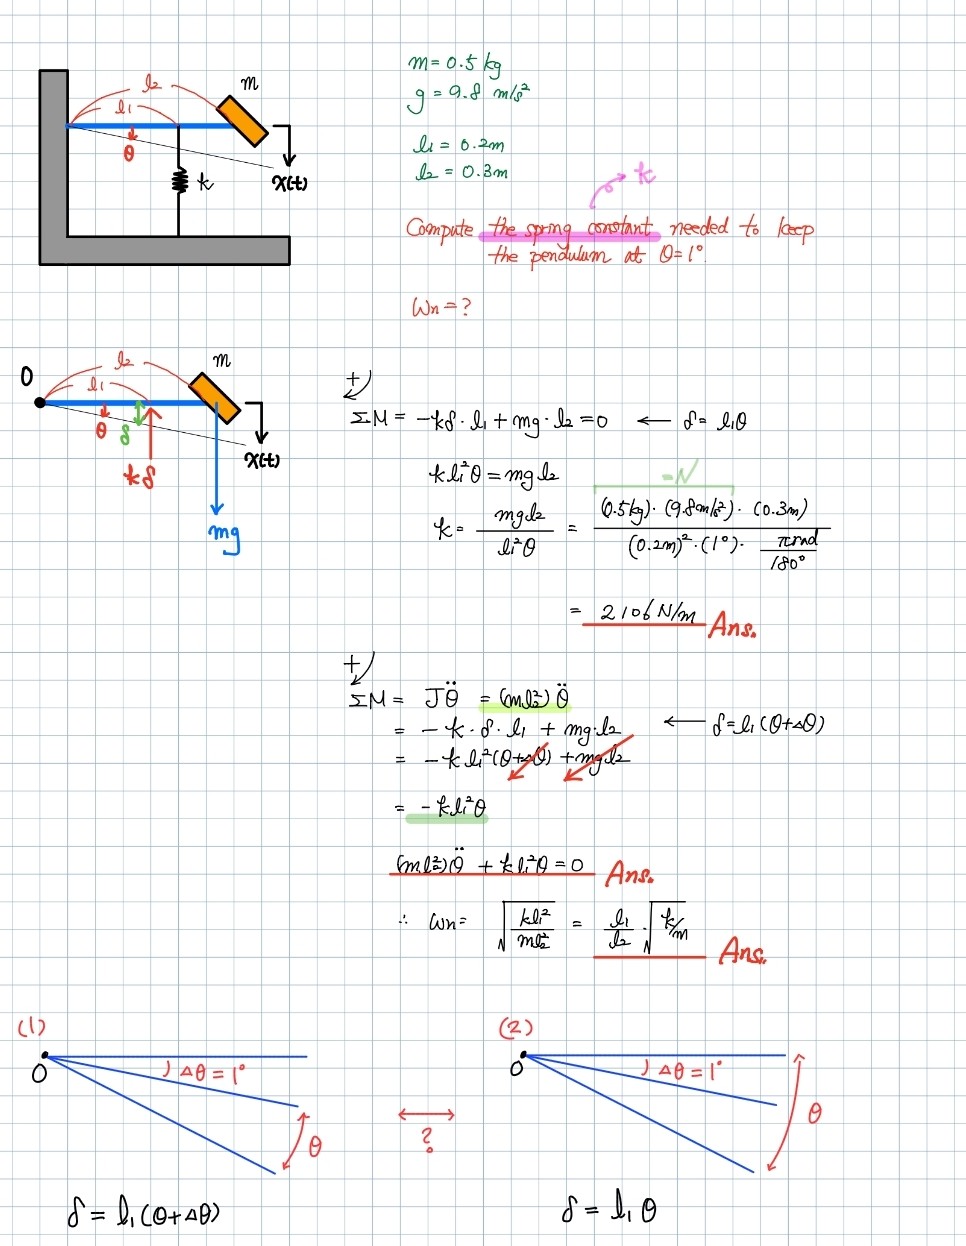 l₂
m
l₁
θ
k
x(t)
m = 0.5 kg
g = 9.8 m/s²
l₁ = 0.2m
l₂ = 0.3m
k
Compute the spring constant needed to keep
the pendulum at θ=1°.
Wn = ?
O
l₂
m
l₁
θ
δ
x(t)
kδ
mg
+
ΣM = -kδ·l₁ + mg·l₂ = 0 ← δ = l₁θ
kl₁²θ = mgl₂
=N
k = mgl₂ / l₁²θ = (0.5kg)·(9.8m/s²)·(0.3m) / (0.2m)²·(1°)· πrad/180°
= 2106 N/m Ans.
+
ΣM = Jθ̈ = (ml₂²)θ̈
= -k·δ·l₁ + mg·l₂ ← δ = l₁(θ+Δθ)
= -kl₁²(θ+Δθ) + mgl₂
= -kl₁²θ
(ml₂²)θ̈ + kl₁²θ = 0 Ans.
∴ Wn = √(kl₁²/ml₂²) = l₁/l₂ · √(k/m)
Ans.
(1)
O
Δθ = 1°
θ
δ = l₁(θ+Δθ)
?
(2)
O
Δθ = 1°
θ
δ = l₁θ